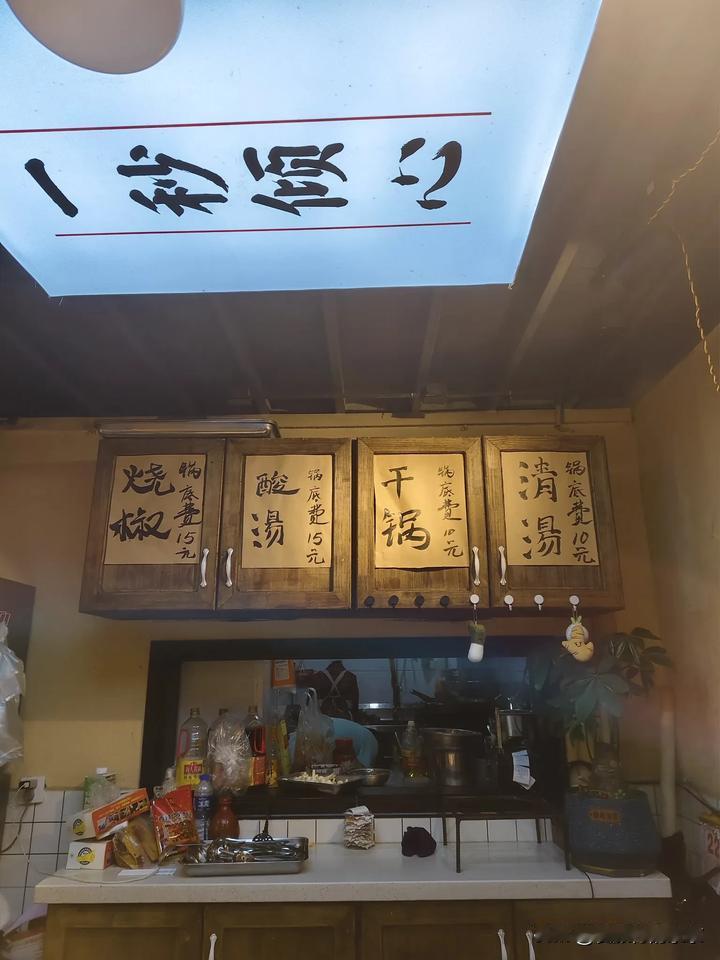 一秒倾心
烧椒
锅底费15元
酸湯
锅底费15元
干锅
锅底费10元
清湯
锅底费10元